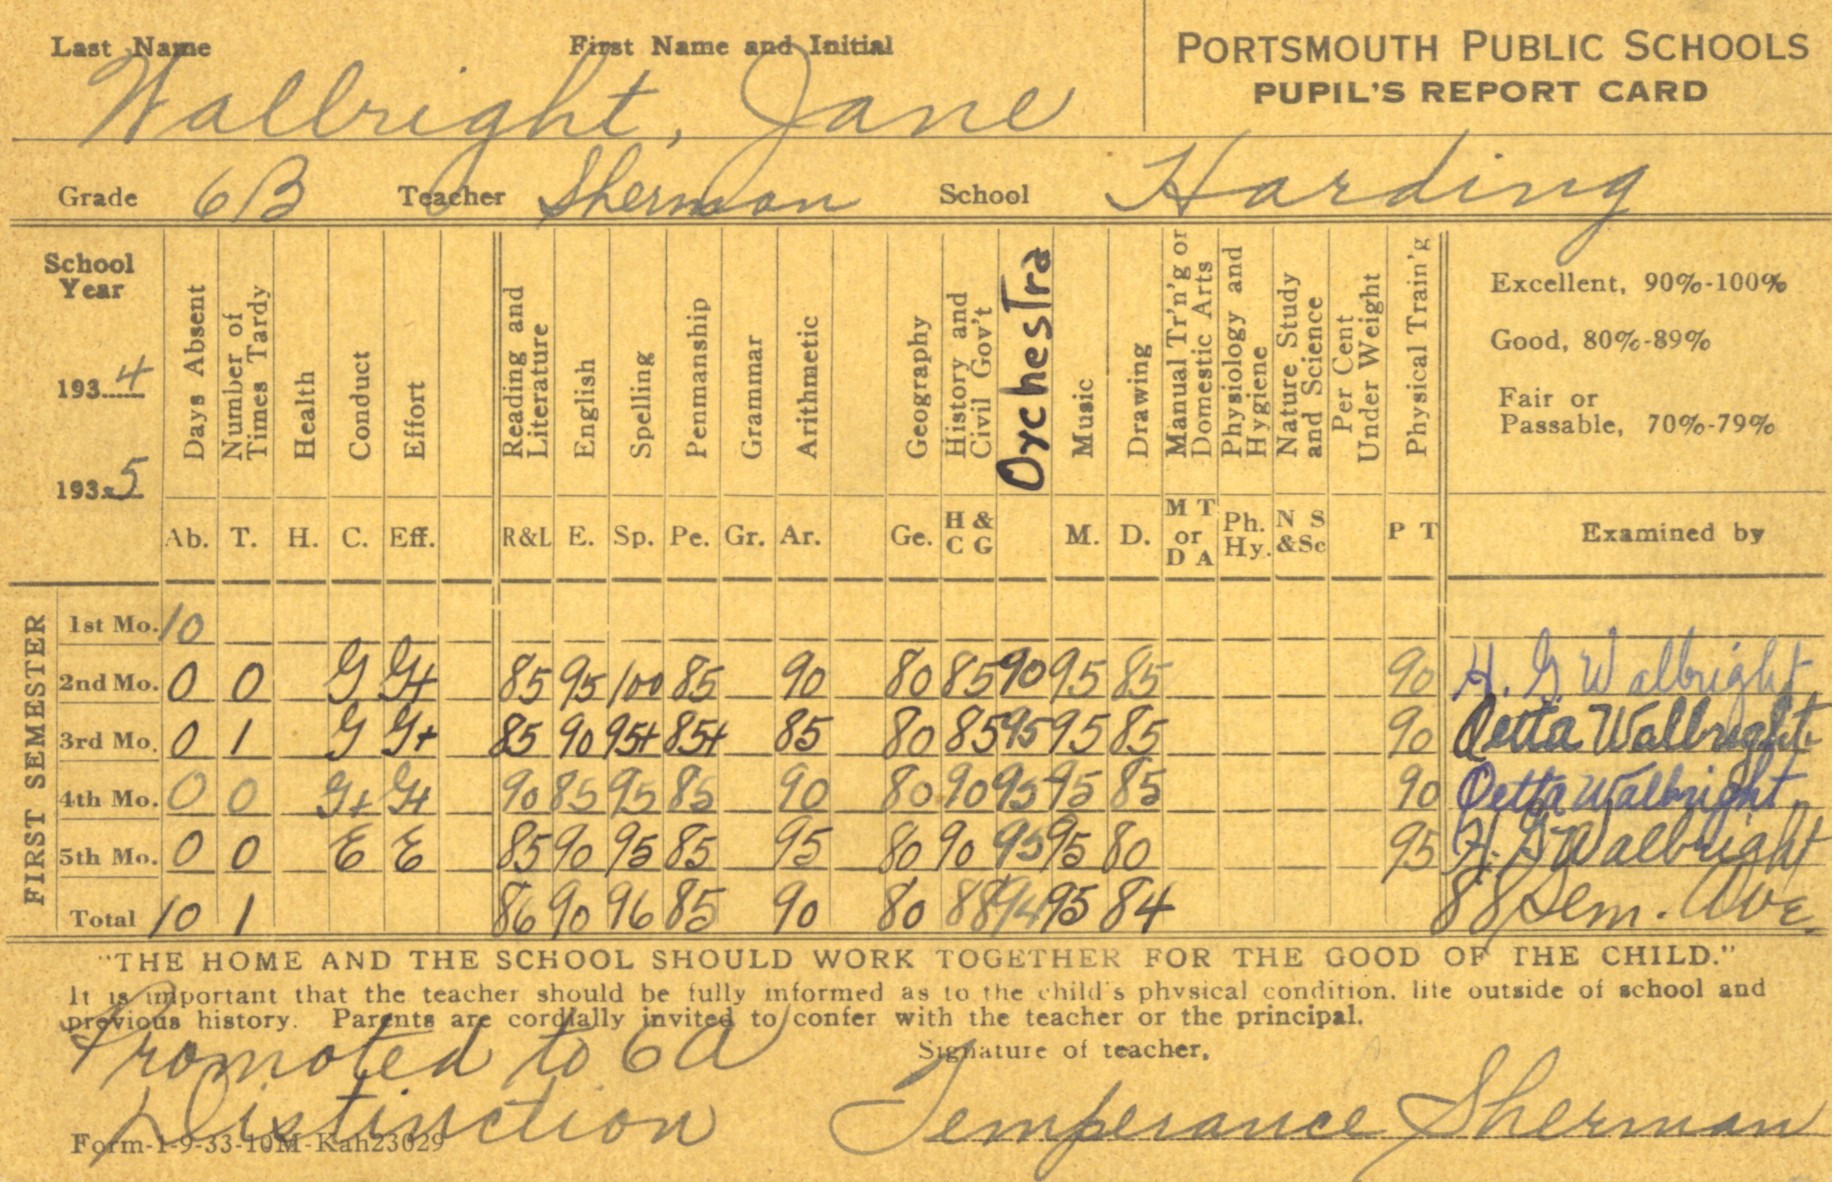 Last Name First Name and Initial
Walbright, Jane
PORTSMOUTH PUBLIC SCHOOLS
PUPIL'S REPORT CARD
Grade 6B Teacher Sherman School Harding
School Year
1934
1935
Days Absent
Number of Times Tardy
Health
Conduct
Effort
Reading and Literature
English
Spelling
Penmanship
Grammar
Arithmetic
Geography
History and Civil Gov't
Orchestra
Music
Drawing
Manual Tr'n'g or Domestic Arts
Physiology and Hygiene
Nature Study and Science
Per Cent Under Weight
Physical Train'g
Excellent, 90%-100%
Good, 80%-89%
Fair or
Passable, 70%-79%
Ab. T. H. C. Eff. R&L E. Sp. Pe. Gr. Ar. Ge. H & C G M. D. M T or D A Ph. Hy. N S &Sc P T Examined by
FIRST SEMESTER
1st Mo. 10
2nd Mo. 0 0 G G+ 85 95 100 85 90 80 85 90 95 85 90 H. G Walbright
3rd Mo. 0 1 G G+ 85 90 95+ 85+ 85 80 85 95 95 85 90 Oetta Walbright
4th Mo. 0 0 G+ G+ 90 85 95 85 90 80 90 95 95 85 90 Oetta Walbright
5th Mo. 0 0 E E 85 90 95 85 95 80 90 95 95 80 95 H. G Walbright
Total 10 1 86 90 96 85 90 80 88 94 95 84 88 Sem. Ave.
"THE HOME AND THE SCHOOL SHOULD WORK TOGETHER FOR THE GOOD OF THE CHILD."
It is important that the teacher should be fully informed as to the child's physical condition, life outside of school and
previous history. Parents are cordially invited to confer with the teacher or the principal.
Promoted to 6A
Signature of teacher,
Distinction
Temperance Sherman
Form-1-9-33-10M-Kah23029